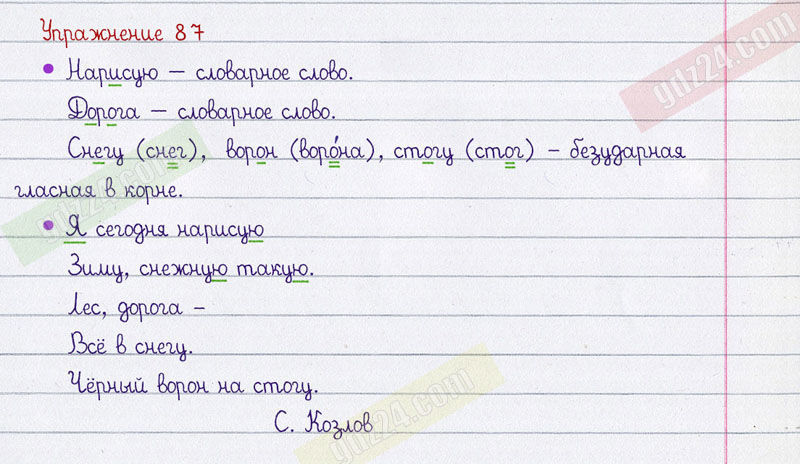 Упражнение 87
gdz24.com
• Нарисую – словарное слово.
Дорога – словарное слово.
Снегу (снег), ворон (воро́на), стогу (стог) – безударная
гласная в корне.
gdz24.com
• Я сегодня нарисую
Зиму, снежную такую.
Лес, дорога –
Всё в снегу.
Чёрный ворон на стогу.
С. Козлов
gdz24.com